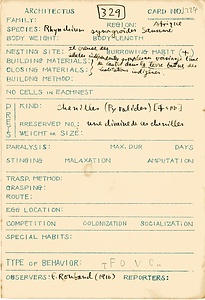 ARCHITECTUS 329 CARD NO. 329
FAMILY: REGION: Afrique
SPECIES: Rhynchium synagroides Saussure
BODY WEIGHT: BODY LENGTH
NESTING SITE: BURROWING HABIT (+)
BUILDING MATERIALS:
CLOSING MATERIALS:
BUILDING METHOD: habitations indigènes.
NO CELLS IN EACH NEST
PREY KIND: Chenilles (Pyralides)
PRESERVED NO.: une dizaine de ces chenilles
WEIGHT OR SIZE:
PARALYSIS: MAX. DUR DAYS
STINGING MALAXATION AMPUTATION
TRASP. METHOD:
GRASPING:
ROUTE:
EGG LOCATION:
COMPETITION COLONIZATION SOCIALIZATION
SPECIAL HABITS:
TYPE OF BEHAVIOR:
OBSERVERS: E. Roubaud (1916) REPORTERS: